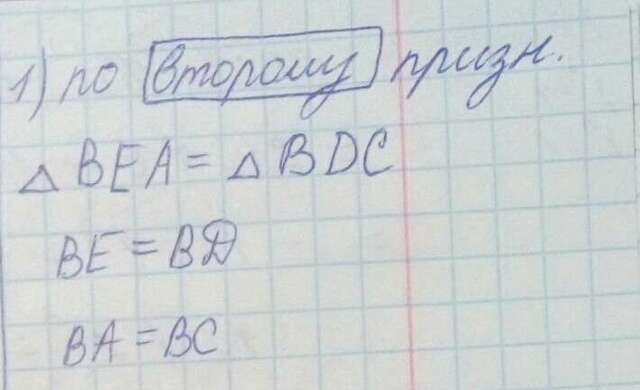 1) по второму призн.
△ BEA = △ BDC
BE = BD
BA = BC